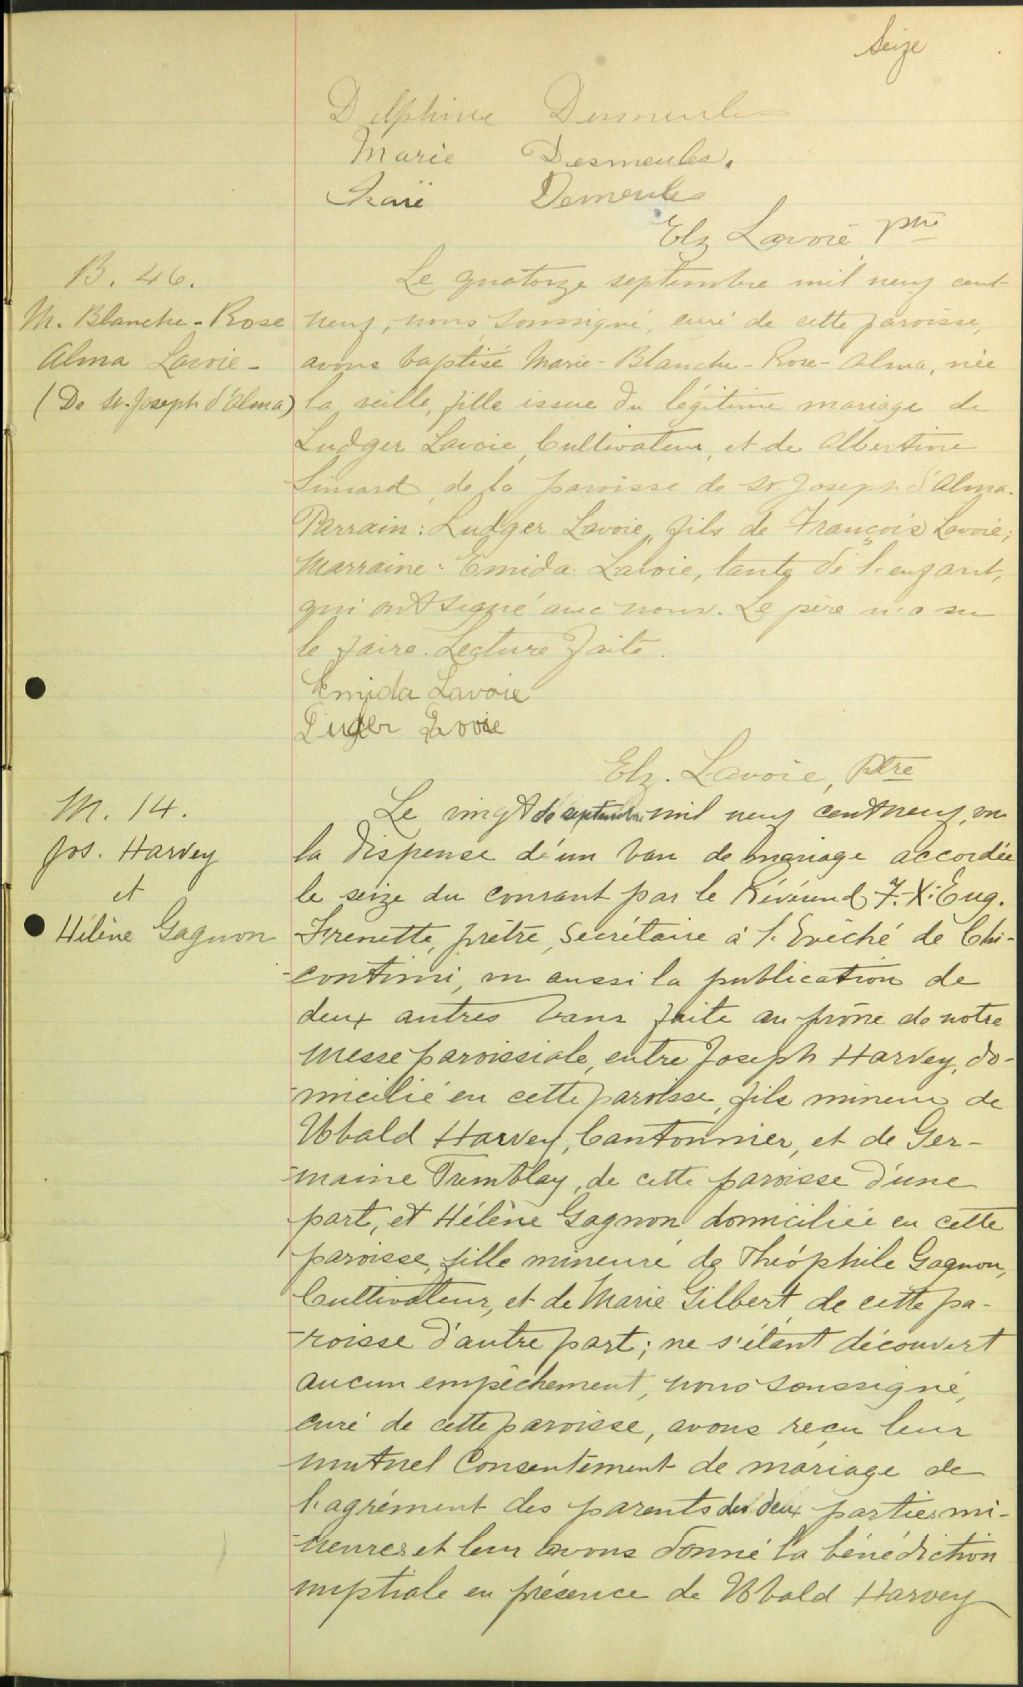 Seize
Delphine Desmeules
Marie Desmeules.
Demeules
Elz Lavoie, ptre
B. 46.
M. Blanche-Rose
Alma Lavoie-
(De St-Joseph d'Alma)
Le quatorze septembre mil neuf cent
neuf, nous soussigné, curé de cette paroisse,
avons baptisé Marie-Blanche-Rose-Alma, née
la veille, fille issue du légitime mariage de
Ludger Lavoie, Cultivateur, et de Albertine
Simard, de la paroisse de St Joseph d'Alma.
Parrain: Ludger Lavoie, fils de François Lavoie;
Marraine: Emida Lavoie, tante de l'enfant,
qui ont signé avec nous. Le père n'a su
le faire. Lecture faite.
Emida Lavoie
Luger Lavoie
Elz. Lavoie, Ptre
M. 14.
Jos. Harvey
et
Hélène Gagnon
Le vingt de septembre mil neuf cent neuf, vu
la dispense d'un ban de mariage accordée
le seize du courant par le Révérend F.-X. Eug.
Frenette, prêtre, Secrétaire à l'Evêché de Chi-
-coutimi, vu aussi la publication de
deux autres bans faite au prône de notre
Messe paroissiale, entre Joseph Harvey, do-
-micilié en cette paroisse, fils mineur de
Ubald Harvey, Cantonnier, et de Ger-
-maine Tremblay, de cette paroisse d'une
part, et Hélène Gagnon domiciliée en cette
paroisse, fille mineure de Théophile Gagnon,
Cultivateur, et de Marie Gilbert de cette pa-
-roisse d'autre part; ne s'étant découvert
aucun empêchement, nous soussigné,
curé de cette paroisse, avons reçu leur
mutuel Consentement de mariage de
l'agrément des parents des deux parties mi-
-neures et leur avons donné la bénédiction
nuptiale en présence de Ubald Harvey